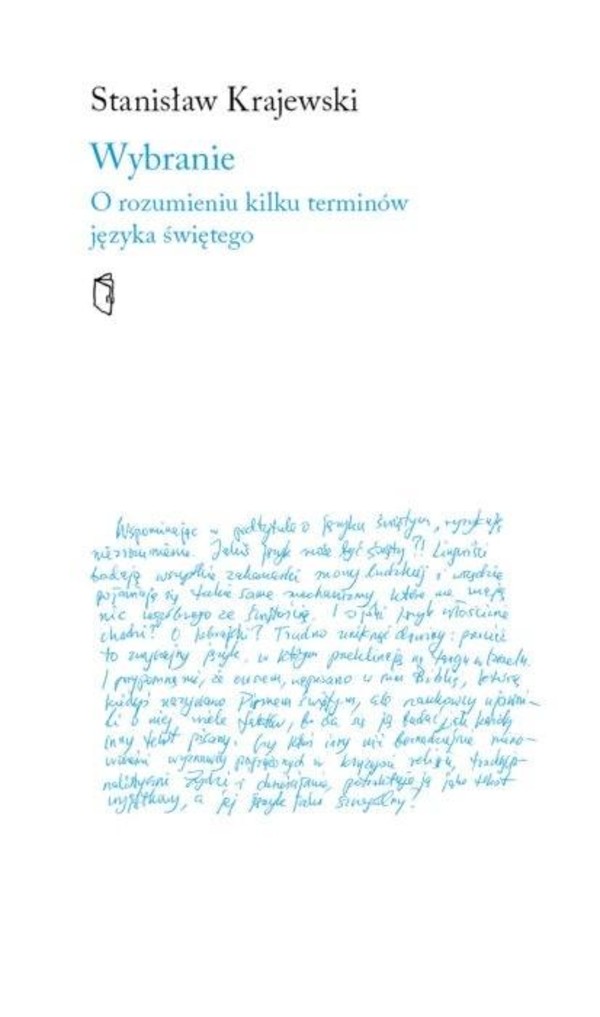 Stanisław Krajewski
Wybranie
O rozumieniu kilku terminów
języka świętego
Wspominając w podtytule o języku świętym, ryzykuję
niezrozumienie. Jakiś język może być święty?! Lingwiści
badają wszystkie zakamarki mowy ludzkiej i wszędzie
pojawiają się takie same mechanizmy, które nie mają
nic wspólnego ze świętością. I o jaki język właściwie
chodzi? O hebrajski? Trudno uniknąć: przecież
to zwyczajny język, w którym przeklinają na targu w Izraelu.
I przypomną mi, że owszem, napisano w nim Biblię, którą
kiedyś nazywano Pismem Świętym, ale naukowcy ujawni-
li o niej wiele faktów, bo da się ją badać jak każdy
inny tekst pisany. Czy ktoś inny niż
wyznawcy pogrążonych w kryzysie religii, tradycjo-
nalistyczni Żydzi i chrześcijanie, potraktuje ją jako tekst
wyjątkowy, a jej język jako szczególny?